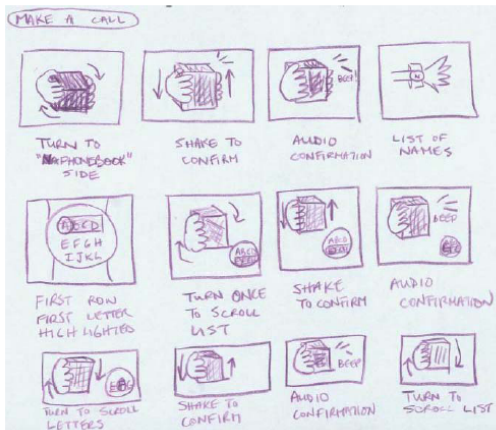 MAKE A CALL
BEEP!
TURN TO
"PHONEBOOK"
SIDE
SHAKE TO
CONFIRM
AUDIO
CONFIRMATION
LIST OF
NAMES
ABCD
EFGH
IJKL
ABCD
BEEP
FIRST ROW
FIRST LETTER
HIGHLIGHTED
TURN ONCE
TO SCROLL
LIST
SHAKE
TO CONFIRM
AUDIO
CONFIRMATION
BEEP
TURN TO SCROLL
LETTERS
SHAKE TO
CONFIRM
AUDIO
CONFIRMATION
TURN TO
SCROLL LIST